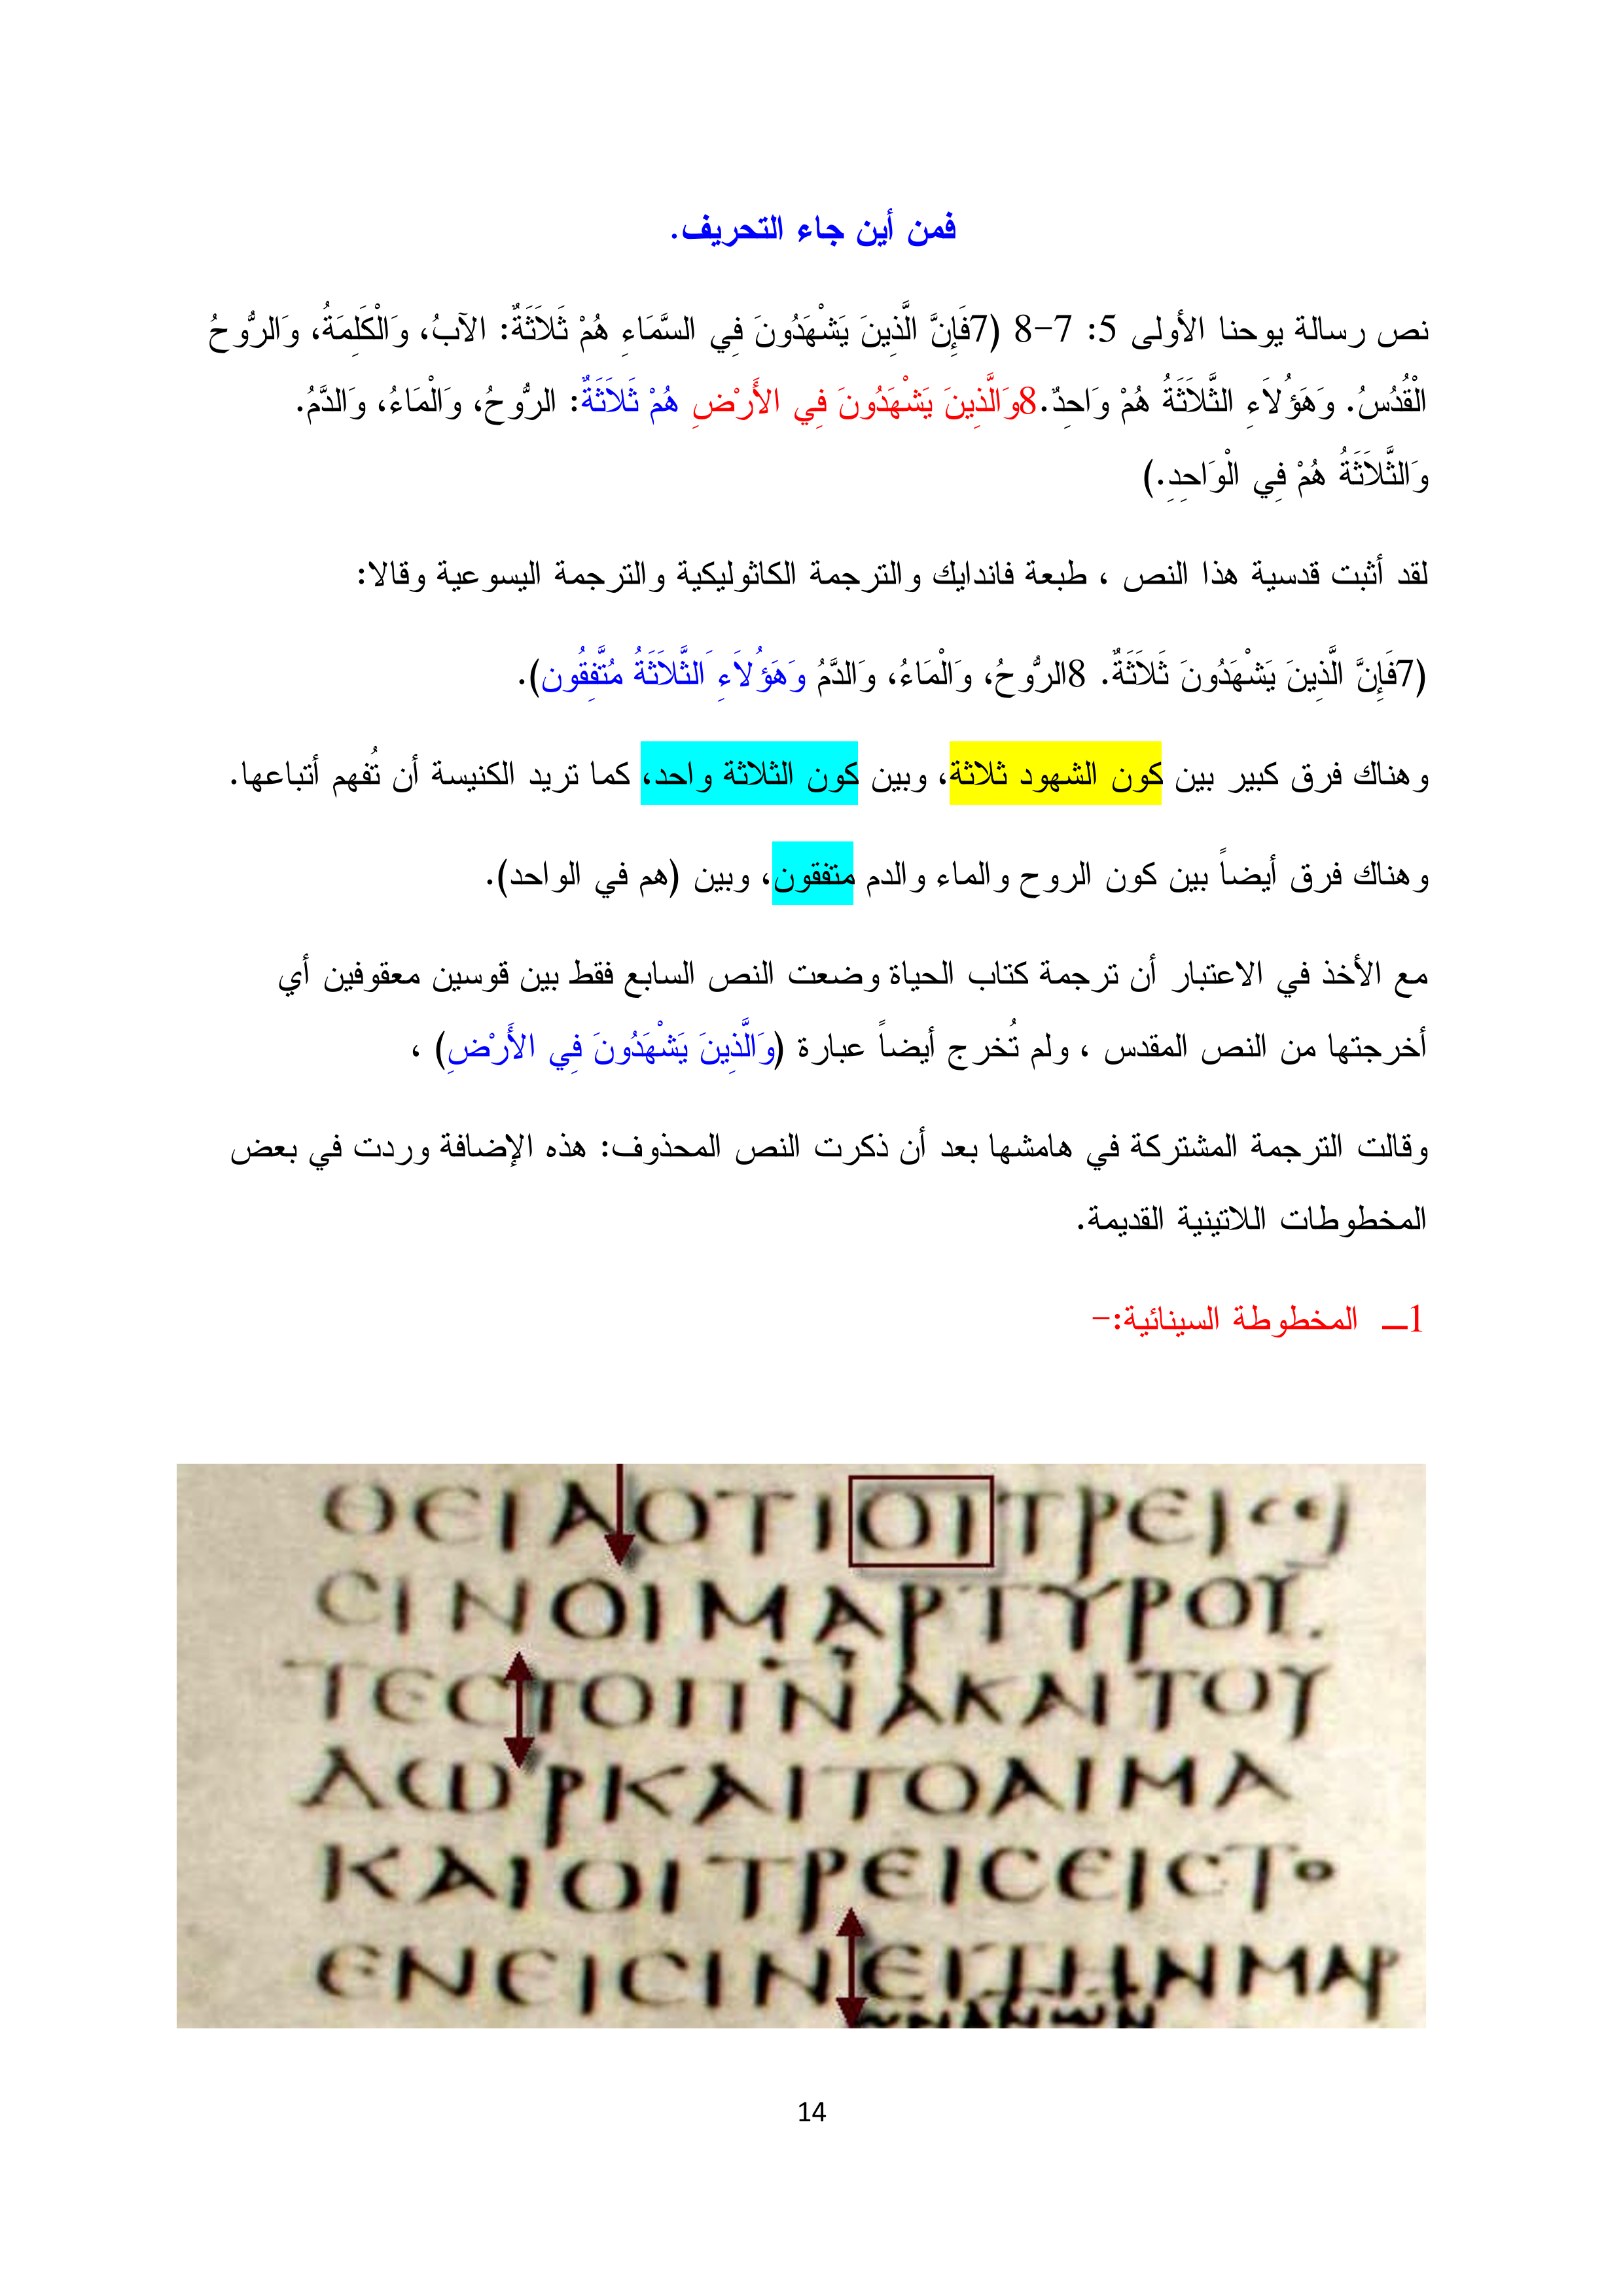 فمن أين جاء التحريف.
نص رسالة يوحنا الأولى 5: 7-8 (7فَإِنَّ الَّذِينَ يَشْهَدُونَ فِي السَّمَاءِ هُمْ ثَلاَثَةٌ: الآبُ، وَالْكَلِمَةُ، وَالرُّوحُ
الْقُدُسُ. وَهَؤُلاَءِ الثَّلاَثَةُ هُمْ وَاحِدٌ.8وَالَّذِينَ يَشْهَدُونَ فِي الأَرْضِ هُمْ ثَلاَثَةٌ: الرُّوحُ، وَالْمَاءُ، وَالدَّمُ.
وَالثَّلاَثَةُ هُمْ فِي الْوَاحِدِ.)
لقد أثبت قدسية هذا النص ، طبعة فاندايك والترجمة الكاثوليكية والترجمة اليسوعية وقالا:
(7فَإِنَّ الَّذِينَ يَشْهَدُونَ ثَلاَثَةٌ. 8الرُّوحُ، وَالْمَاءُ، وَالدَّمُ وَهَؤُلاَءِ َالثَّلاَثَةُ مُتَّفِقُون).
وهناك فرق كبير بين كون الشهود ثلاثة، وبين كون الثلاثة واحد، كما تريد الكنيسة أن تُفهم أتباعها.
وهناك فرق أيضاً بين كون الروح والماء والدم متفقون، وبين (هم في الواحد).
مع الأخذ في الاعتبار أن ترجمة كتاب الحياة وضعت النص السابع فقط بين قوسين معقوفين أي
أخرجتها من النص المقدس ، ولم تُخرج أيضاً عبارة (وَالَّذِينَ يَشْهَدُونَ فِي الأَرْضِ) ،
وقالت الترجمة المشتركة في هامشها بعد أن ذكرت النص المحذوف: هذه الإضافة وردت في بعض
المخطوطات اللاتينية القديمة.
1ـ المخطوطة السينائية:-
ΘΕΙΑΟΤΙΟΙΤΡΕΙϹ
ϹΙΝΟΙΜΑΡΤΥΡΟΥ
ΤΕϹΤΟΠΝΑΚΑΙΤΟΥ
ΔΩΡΚΑΙΤΟΑΙΜΑ
ΚΑΙΟΙΤΡΕΙϹΕΙϹΤΟ
ΕΝΕΙϹΙΝΕΙΤΗΝΜΑΡ
14